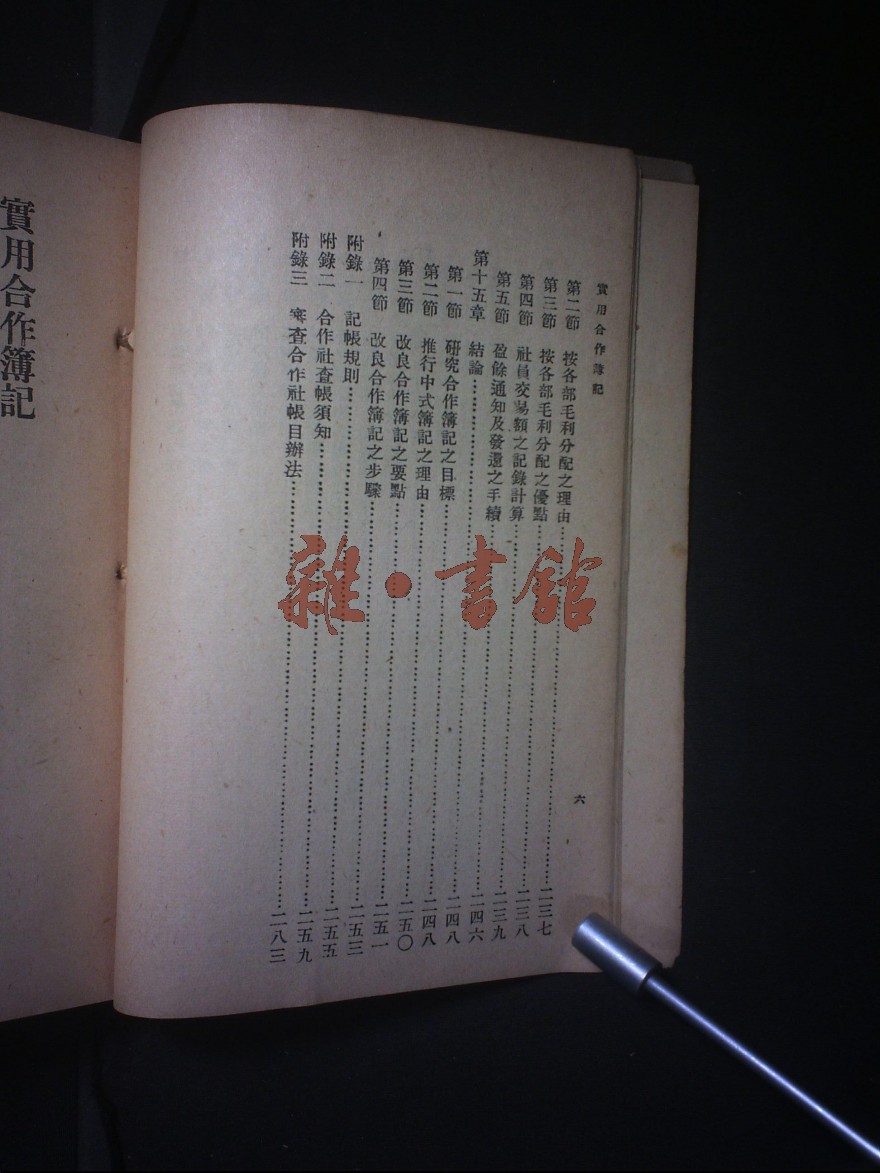 實用合作簿記
六
第二節 按各部毛利分配之理由……二三七
第三節 按各部毛利分配之優點……二三八
第四節 社員交易額之記錄計算……二三九
第五節 盈餘通知及發還之手續……二四六
第十五章 結論……二四八
第一節 研究合作簿記之目標……二四八
第二節 推行中式簿記之理由……二五〇
第三節 改良合作簿記之要點……二五一
第四節 改良合作簿記之步驟……二五三
附錄一 記帳規則……二五五
附錄二 合作社查帳須知……二五九
附錄三 審查合作社帳目辦法……二八三
實用合作簿記
雜·書館